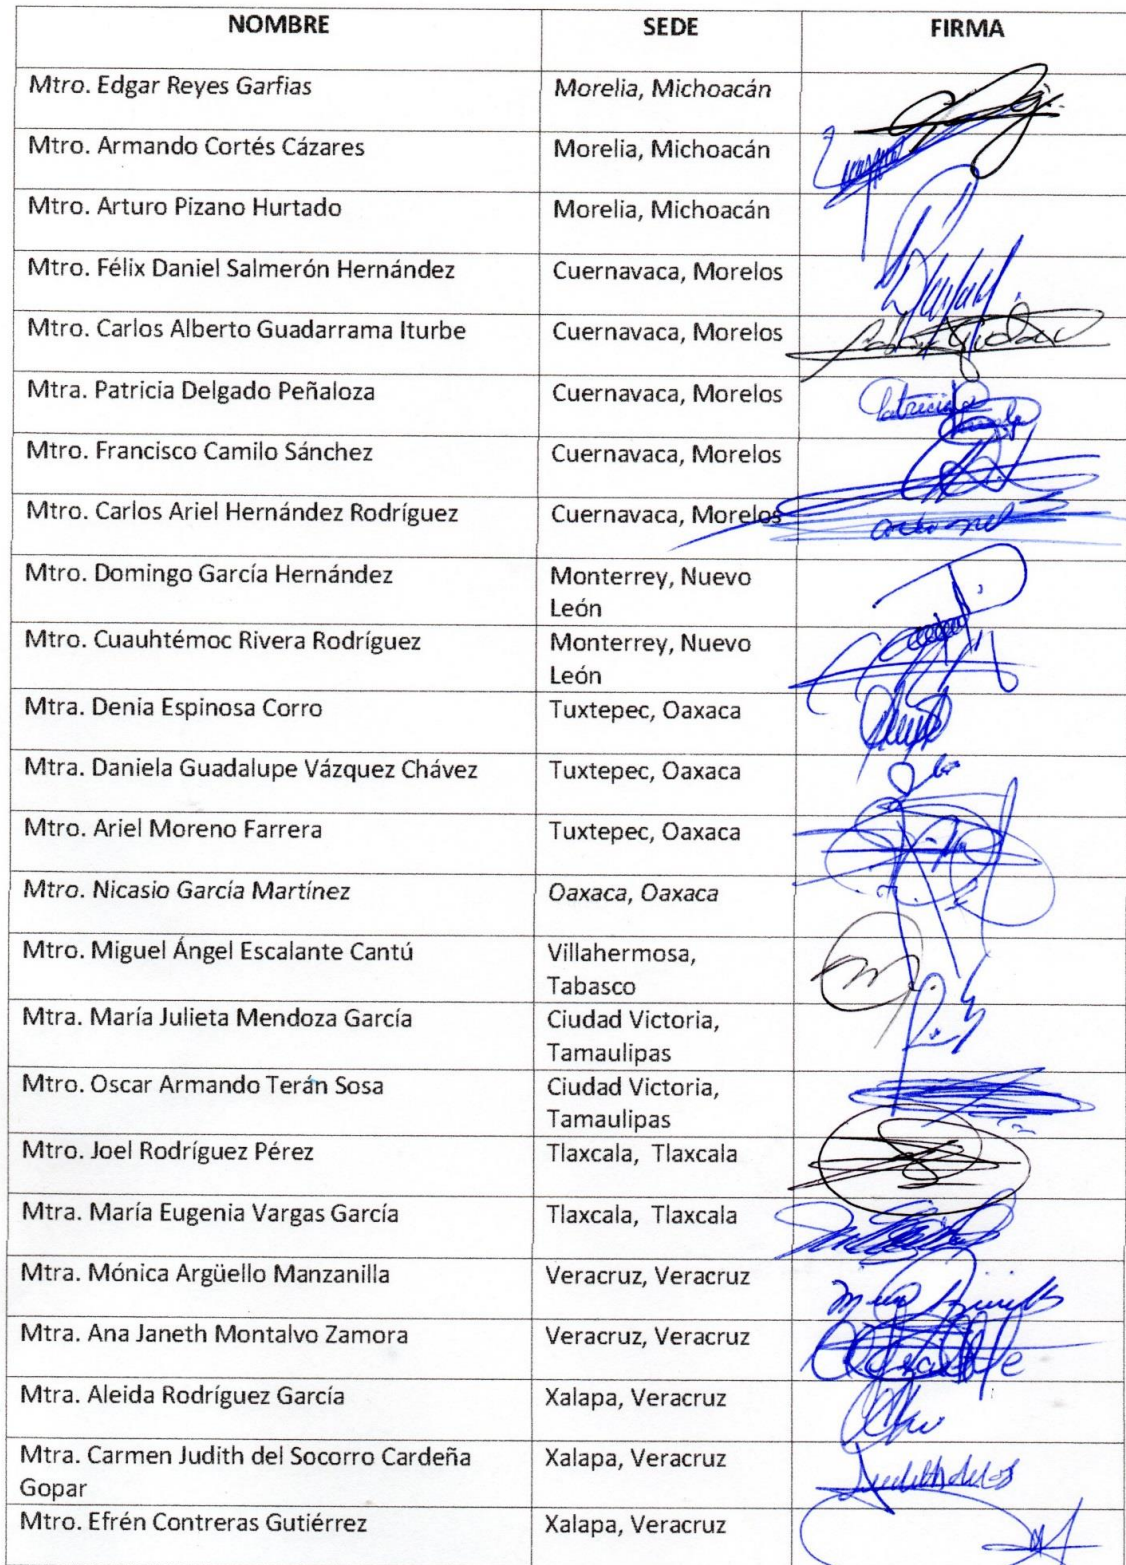 NOMBRE SEDE FIRMA
Mtro. Edgar Reyes Garfias Morelia, Michoacán
Mtro. Armando Cortés Cázares Morelia, Michoacán
Mtro. Arturo Pizano Hurtado Morelia, Michoacán
Mtro. Félix Daniel Salmerón Hernández Cuernavaca, Morelos
Mtro. Carlos Alberto Guadarrama Iturbe Cuernavaca, Morelos
Mtra. Patricia Delgado Peñaloza Cuernavaca, Morelos Patricia
Mtro. Francisco Camilo Sánchez Cuernavaca, Morelos
Mtro. Carlos Ariel Hernández Rodríguez Cuernavaca, Morelos
Mtro. Domingo García Hernández Monterrey, Nuevo
León
Mtro. Cuauhtémoc Rivera Rodríguez Monterrey, Nuevo
León
Mtra. Denia Espinosa Corro Tuxtepec, Oaxaca
Mtra. Daniela Guadalupe Vázquez Chávez Tuxtepec, Oaxaca
Mtro. Ariel Moreno Farrera Tuxtepec, Oaxaca
Mtro. Nicasio García Martínez Oaxaca, Oaxaca
Mtro. Miguel Ángel Escalante Cantú Villahermosa,
Tabasco
Mtra. María Julieta Mendoza García Ciudad Victoria,
Tamaulipas
Mtro. Oscar Armando Terán Sosa Ciudad Victoria,
Tamaulipas
Mtro. Joel Rodríguez Pérez Tlaxcala, Tlaxcala
Mtra. María Eugenia Vargas García Tlaxcala, Tlaxcala
Mtra. Mónica Argüello Manzanilla Veracruz, Veracruz
Mtra. Ana Janeth Montalvo Zamora Veracruz, Veracruz
Mtra. Aleida Rodríguez García Xalapa, Veracruz
Mtra. Carmen Judith del Socorro Cardeña Xalapa, Veracruz
Gopar
Mtro. Efrén Contreras Gutiérrez Xalapa, Veracruz